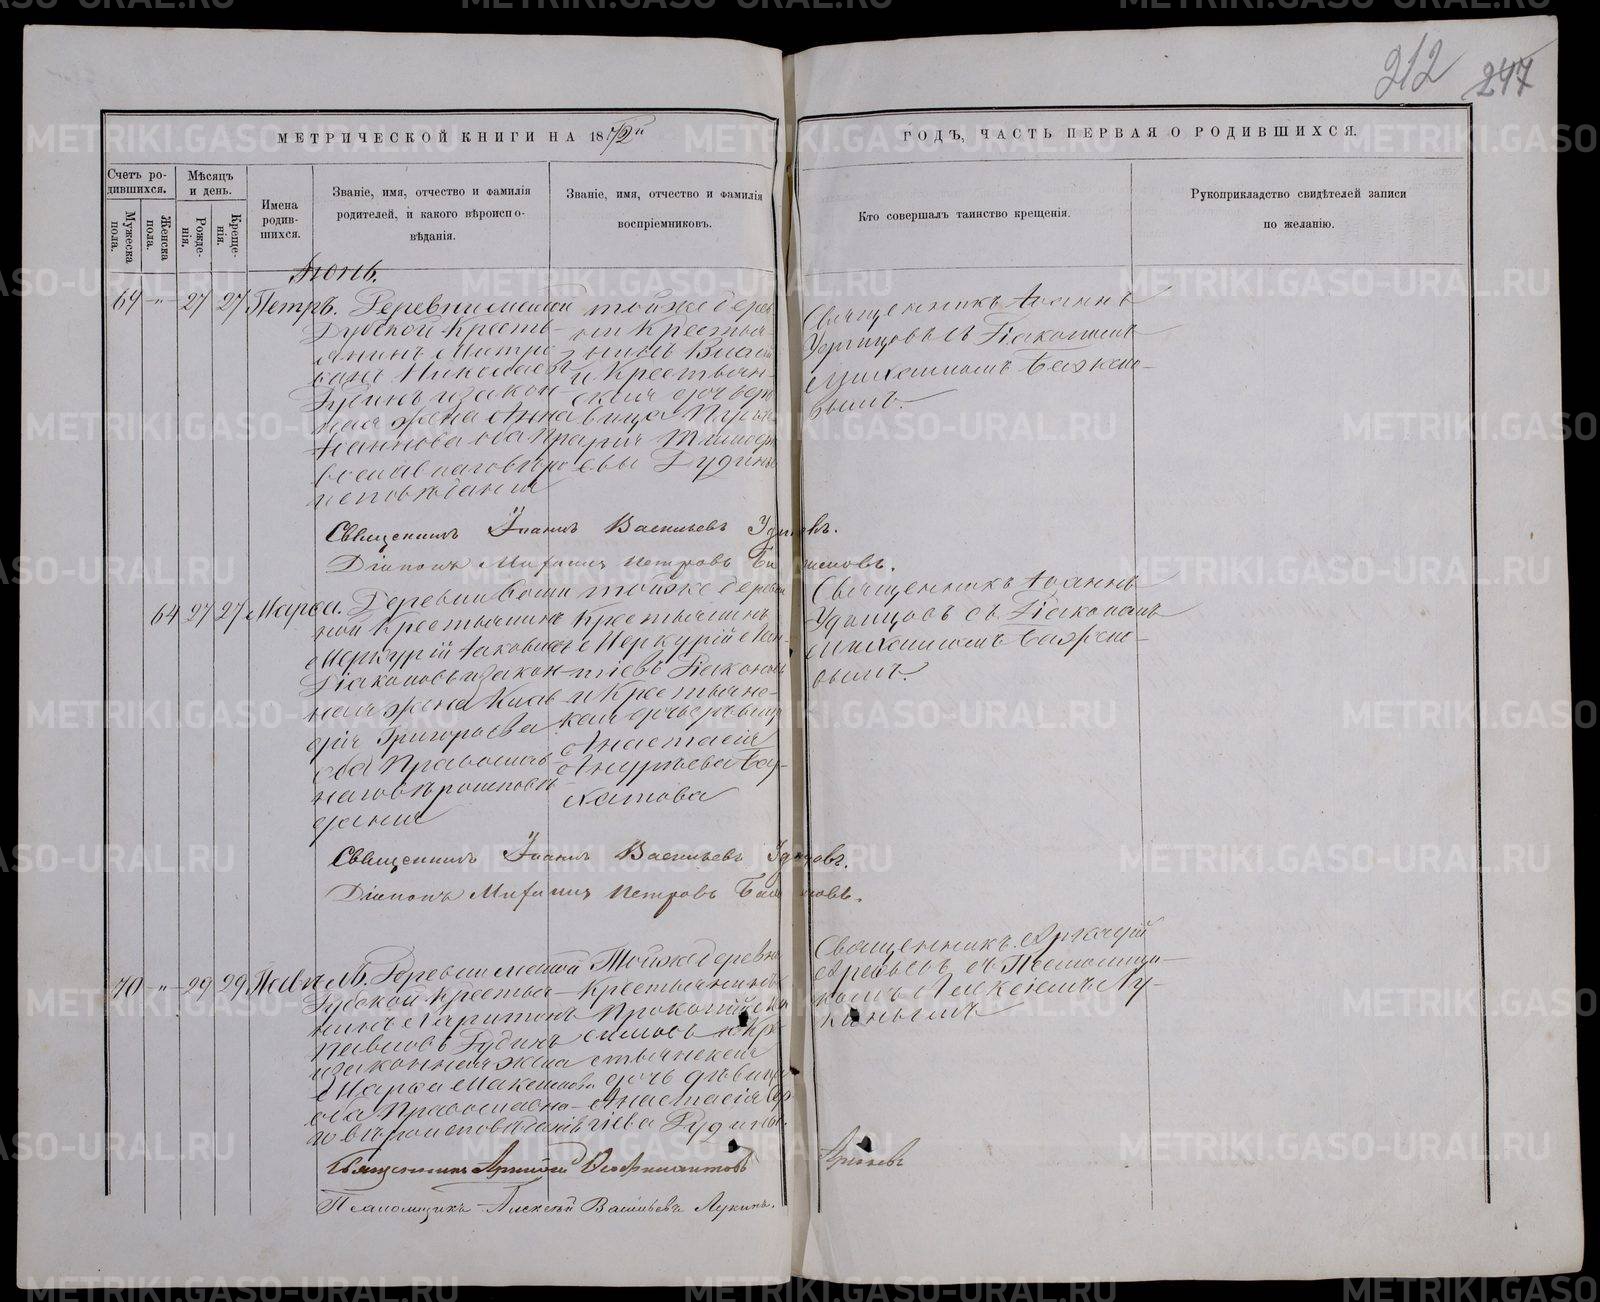 212 247
МЕТРИЧЕСКОЙ КНИГИ НА 1872й
ГОДЪ, ЧАСТЬ ПЕРВАЯ О РОДИВШИХСЯ.
Счетъ ро-
дившихся.
Мужеска
пола.
Женска
пола.
Мѣсяцъ
и день.
Рожде-
нія.
Креще-
нія.
Имена
родив-
шихся.
Званіе, имя, отчество и фамилія
родителей, и какого вѣроиспо-
вѣданія.
Званіе, имя, отчество и фамилія
воспріемниковъ.
Кто совершалъ таинство крещенія.
Рукоприкладство свидѣтелей записи
по желанію.
69 -„- 27 27 Петръ.
Деревни малой
Дубской Кресть-
янинъ Митро-
фанъ Николаевъ
Гудинъ и закон-
ная жена Анна
Іоаннова оба пра
вославнаго вѣро
исповѣданія
той же дерев
ни Крестья-
нинъ
и Крестьян-
ская дочь дѣ
вица
Тимофе
евы Гудины
Священникъ Іоаннъ
Удинцовъ съ Діакономъ
Михаиломъ Бажено-
вымъ.
Священникъ Іоаннъ Васильевъ Удинцовъ.
Діаконъ Михаилъ Петровъ Баженовъ.
64 27 27 Марѳа.
Деревни Боль
ной Крестьянинъ
Меркурій Іаковлевъ
Діаконовъ и закон-
ная жена Клав
дія Григорьева
оба Православ-
наго вѣроисповѣ
данія
той же деревни
Крестьянинъ
Меркурій
Діаконовъ
и Крестьян-
ская дочь дѣвица
Анастасія
Священникъ Іоаннъ
Удинцовъ съ Діакономъ
Михаиломъ Бажено-
вымъ.
Священникъ Іоаннъ Васильевъ Удинцовъ.
Діаконъ Михаилъ Петровъ Баженовъ.
70 -„- 29 29 Павелъ.
Деревни малой
Дубской Крестья-
нинъ Харитонъ
Павловъ Гудинъ
и законная жена
Марѳа Максимова
оба Православна-
го вѣроисповѣданія
Той же деревни
Крестьянинъ
Прокопій
и Кре-
стьянская
дочь дѣвица
Анастасія
Гудины.
Священникъ Аркадій
Арефьевъ съ Псаломщи-
комъ Алексіемъ Лу-
кинымъ
Священникъ Аркадій
Арефьевъ
Псаломщикъ Алексѣй Васильевъ Лукинъ.
METRIKI.GASO-URAL.RU